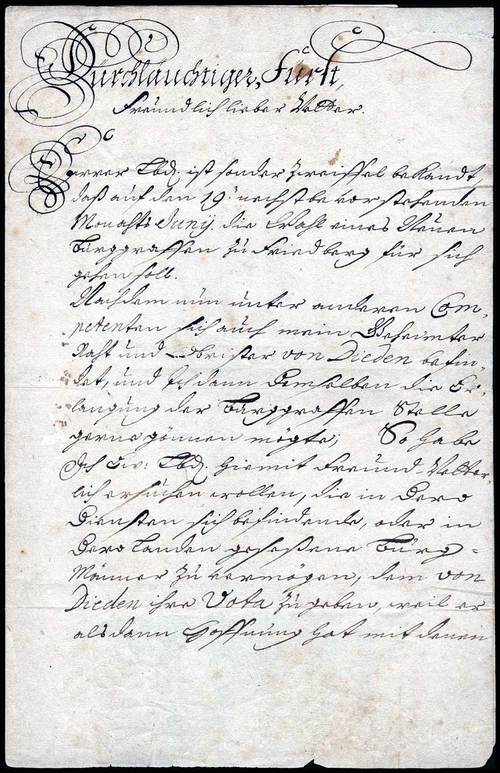 Durchlauchtiger Fürst,
Freündlich lieber Vetter.
Ewer Lbd. ist sonder Zweiffel bekandt,
daß auf den 19. nechstbevorstehenden
Monahts Junij, die Wahl eines Neüen
Burggraffen zu Friedberg für sich
gehen soll.
Nachdem nun unter anderen Com-
petenten sich auch mein Geheimter
Raht und Obrister von Dieden befin-
det, und Ich dann demselben die Er-
langung der Burggraffen Stelle
gerne gönnen mögte; So habe
Ich Ew: Lbd. hiemit Freünd-Vetter-
lich ersuchen wollen, die in Dero
Diensten sich befindende, oder in
Dero Landen geseßene Burg-
Männer zu vermögen, dem von
Dieden ihre Vota zu geben, weil er
als dann Hoffnung hat mit denen